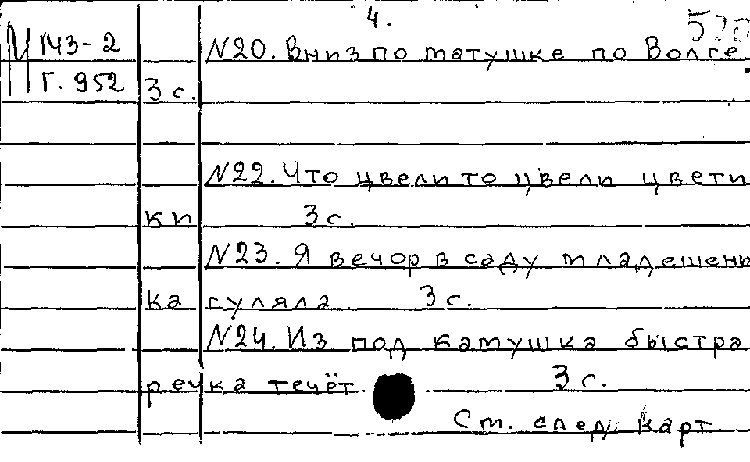 4.
М 143-2 №20. Вниз по матушке по Волге 520
Г. 952 3 с.
№22. Что цвели то цвели цвети
ки 3 с.
№23. Я вечор в саду младешень
ка гуляла 3 с.
№24. Из под камушка быстра
речка течёт 3 с.
См. след карт